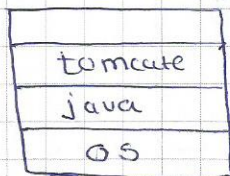 tomcate
java
OS